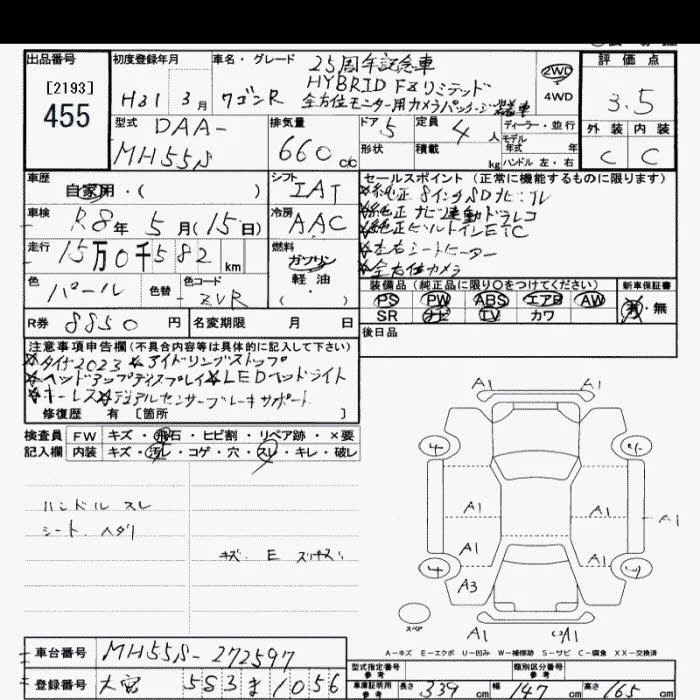 出品番号
[2193]
455
初度登録年月
H31 3月
車名・グレード
25周年記念車
HYBRID FXリミテッド
ワゴンR 全方位モニター用カメラパッケージ装着車
2WD
4WD
評価点
3.5
外装 内装
C C
型式
DAA-
MH55S
排気量
660 cc
ドア 5
定員 4人
形状
積載 kg
ディーラー・並行
モデル
年式 年
ハンドル 左・右
車歴
自家用・( )
シフト
IAT
車検
R8年5月(15日)
冷房
AAC
走行
15万0千582 km
燃料
ガソリン
軽油
( )
色
パール
色替
色コード
ZVR
セールスポイント (正常に機能するものに限ります)
☆純正 8インチSDナビTV
☆純正 ナビ連動ドラレコ
☆純正ビルトインETC
☆左右シートヒーター
☆全方位カメラ
装備品 (純正品に限り○をつけてください)
PS PW ABS エアB AW
SR ナビ TV カワ
新車保証書
有・無
R券 8850円
名変期限 月 日
後日品
注意事項申告欄(不具合内容等は具体的に記入して下さい)
☆タイヤ2023 ☆アイドリングストップ
☆ヘッドアップディスプレイ☆LEDヘッドライト
☆キーレス☆デュアルセンサーブレーキサポート
修復歴 有 [箇所 ]
検査員
記入欄
FW キズ・飛石・ヒビ割・リペア跡・×要
内装 キズ・汚レ・コゲ・穴・スレ・キレ・破レ
ハンドル スレ
シート ヘタリ
キズ E スリキズ
A1 A1
A1 A1 A1
A1 A1
A3
A1 A1
スペア
A-キズ E-エクボ U-凹み W-補修跡 S-サビ C-腐食 XX-交換済
車台番号 MH55S-272597
登録番号 583 ま 1056
型式指定番号
参考
類別区分番号
参考
車庫証明用
参考
長さ 339cm 幅 147cm 高さ 165cm